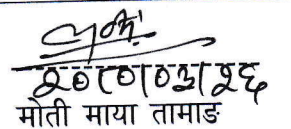 २०८०|०३|२६
मोती माया तामाङ